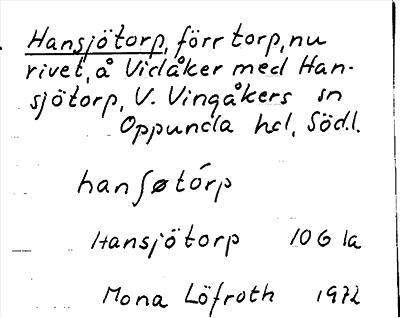 Hansjötorp, förr torp, nu
rivet, å Vidåker med Han-
sjötorp, V. Vingåkers sn
Oppunda hd, Södl.
hanʃøtórp
Hansjötorp 10G 1a
Mona Löfroth 1972